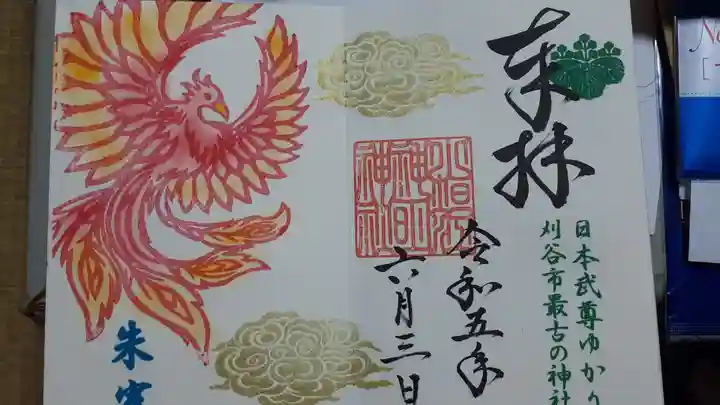 奉拝
日本武尊ゆかり
刈谷市最古の神社
令和五年
六月三日
朱
No